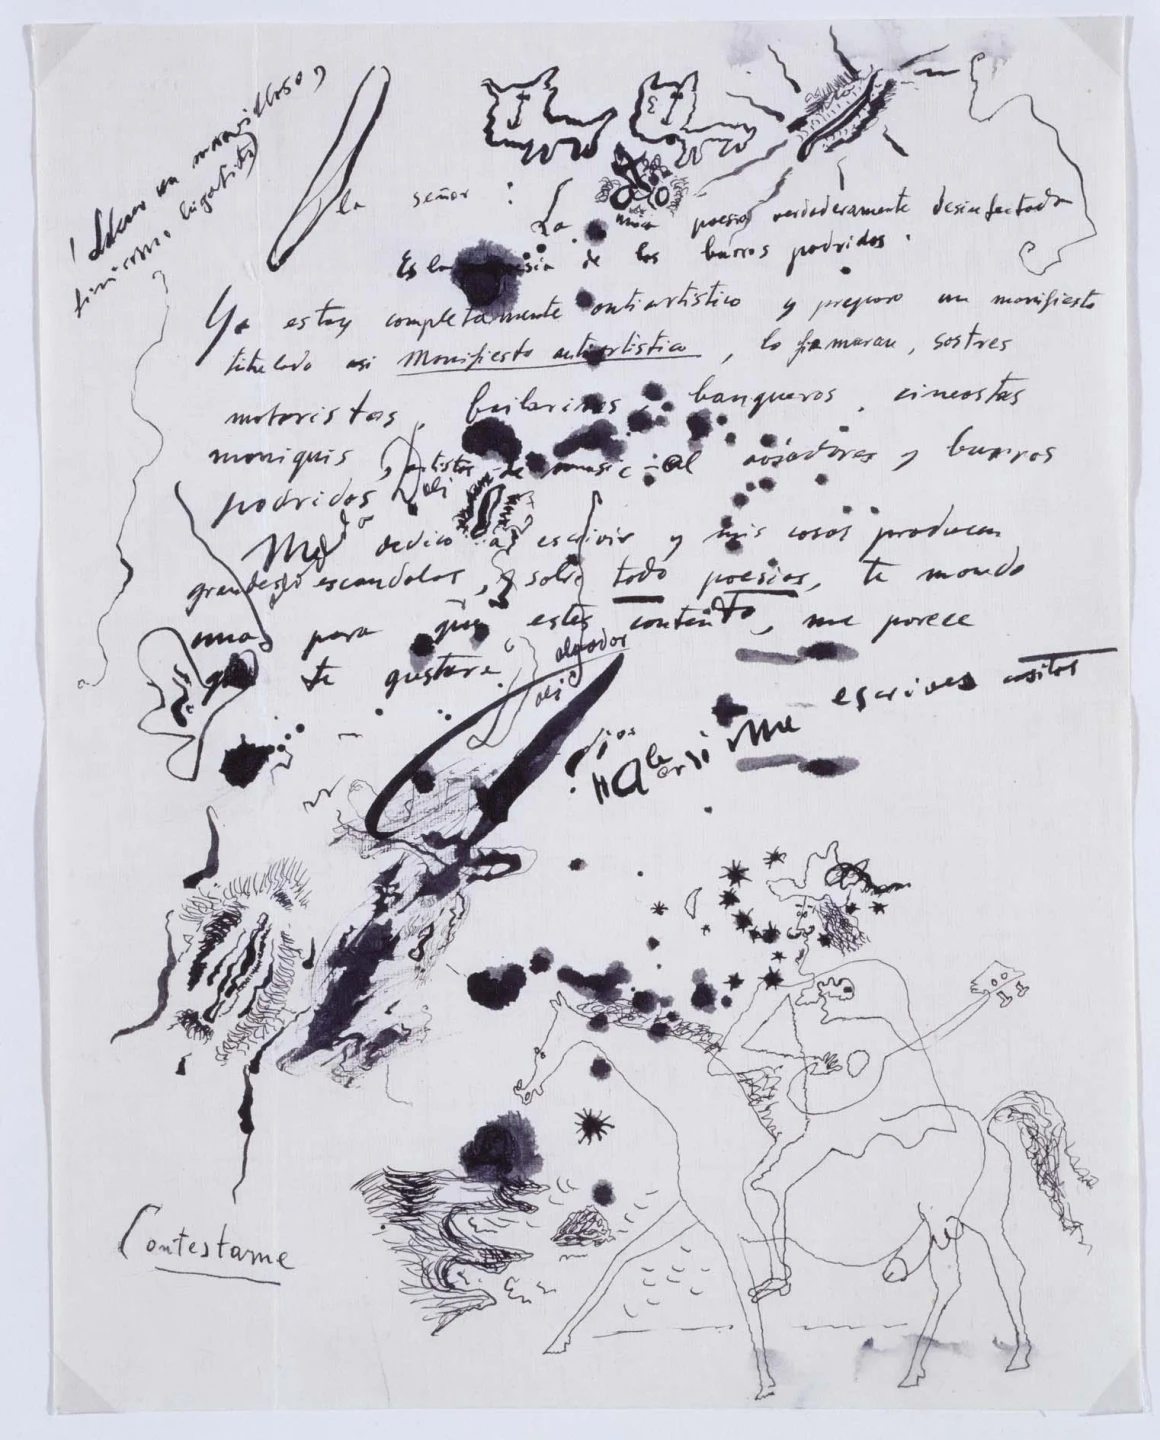 ¡ Llevo un maravilloso,
finisimo bigotito
la señor :
La unica poesia verdaderamente desinfectada
Es la poesia de los burros podridos.
Yo estoy completamente antiartistico y preparo un manifiesto
titulado asi Manifiesto antiartistico, lo firmaran, sostres
motoristas, bailarines, banqueros, cineastas
moniquis, artistas de music-al aviadores y burros
podridos
Me dedico a escrivir y mis cosas producen
grandes escandalos, solo todo poesias, te mando
una para que estes contento, me parece
que te gustara
algodor
Me escrives cositas
Contestame